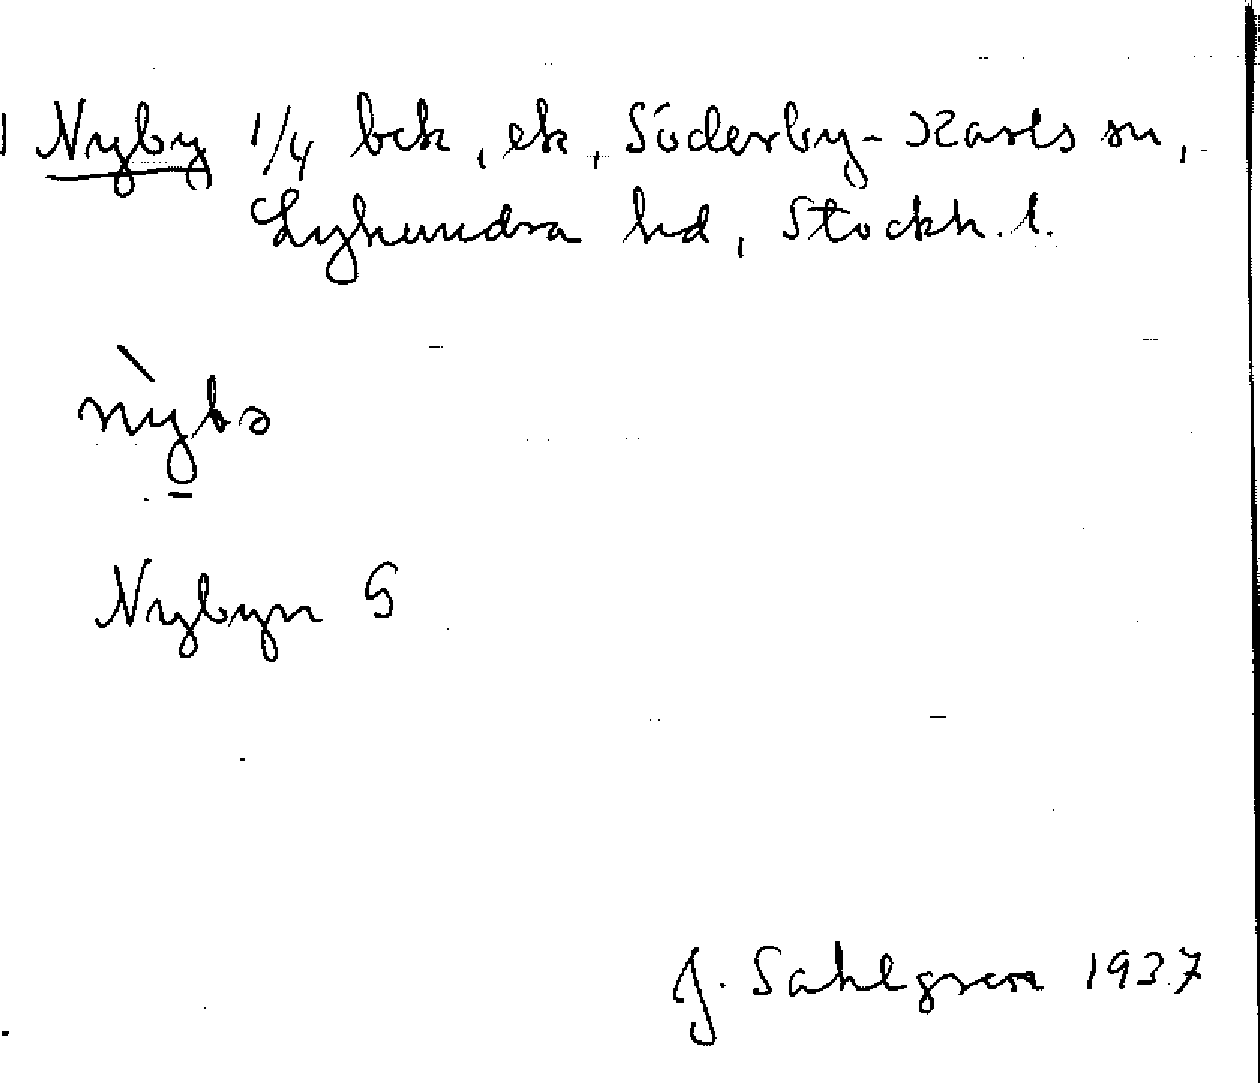 1 Nyby 1/4 bck, ek, Söderby-Karls sn,
Lyhundra hd, Stockh. l.
nỳbə
Nybyn G
J. Sahlgren 1937